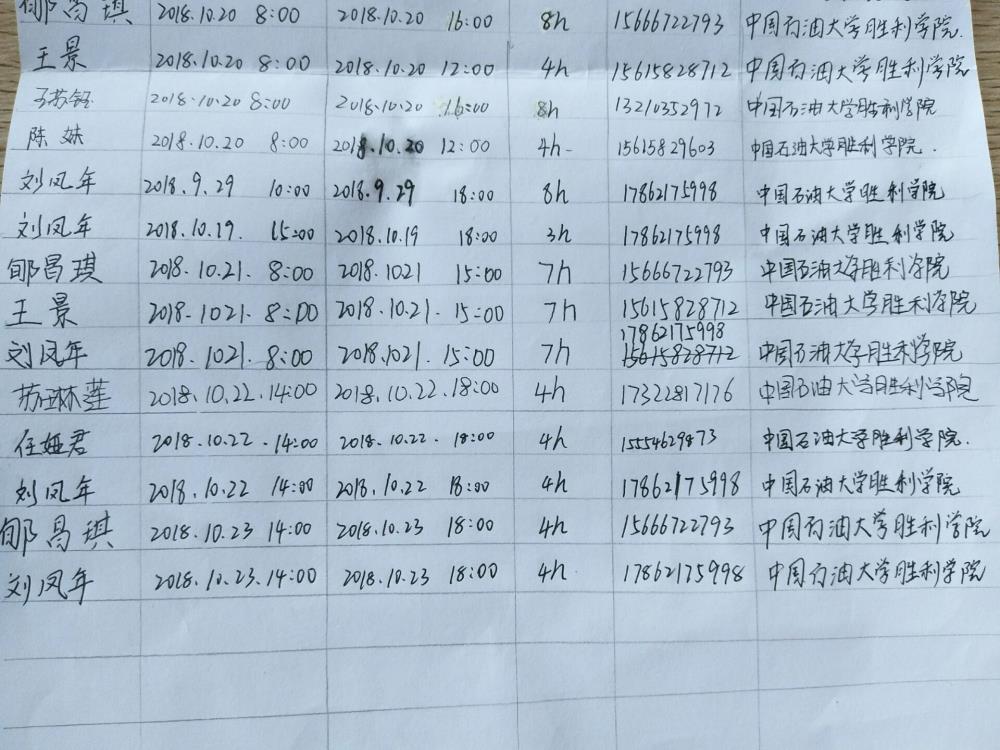 郇昌琪 2018.10.20 8:00 2018.10.20 16:00 8h 15666722793 中国石油大学胜利学院.
王景 2018.10.20 8:00 2018.10.20 12:00 4h 15615828712 中国石油大学胜利学院
2018.10.20 8:00 2018.10.20 16:00 8h 13210352972 中国石油大学胜利学院
陈妹 2018.10.20 8:00 2018.10.20 12:00 4h- 15615829603 中国石油大学胜利学院.
刘凤年 2018.9.29 10:00 2018.9.29 18:00 8h 17862175998 中国石油大学胜利学院
刘凤年 2018.10.19. 15:00 2018.10.19 18:00 3h 17862175998 中国石油大学胜利学院
郇昌琪 2018.10.21. 8:00 2018.1021 15:00 7h 15666722793 中国石油大学胜利学院
王景 2018.1021. 8:00 2018.10.21. 15:00 7h 15615828712 中国石油大学胜利学院
17862175998
刘凤年 2018.1021. 8:00 2018.1021. 15:00 7h 15615828712 中国石油大学胜利学院
苏琳莲 2018.10.22.14:00 2018.10.22.18:00 4h 17322817176 中国石油大学胜利学院
任娅君 2018.10.22.14:00 2018.10.22. 18:00 4h 15554629873 中国石油大学胜利学院.
刘凤年 2018.10.22 14:00 2018.10.22 18:00 4h 17862175998 中国石油大学胜利学院
郇昌琪 2018.10.23 14:00 2018.10.23 18:00 4h 15666722793 中国石油大学胜利学院
刘凤年 2018.10.23.14:00 2018.10.23 18:00 4h 17862175998 中国石油大学胜利学院